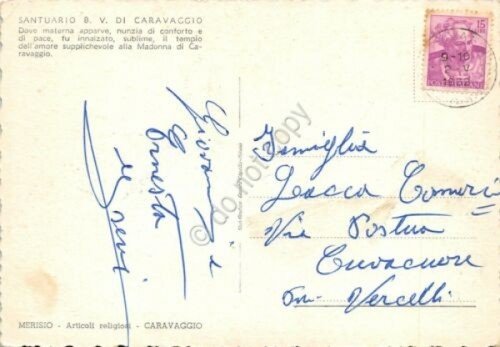 SANTUARIO B. V. DI CARAVAGGIO
Dove materna apparve, nunzia di conforto e
di pace, fu innalzato, sublime, il tempio
dell'amore supplichevole alla Madonna di Ca-
ravaggio.
15
9-10
Giovanni e
Ernesta
Famiglia
Via
Curacuore
Vercelli
© do not copy
MERISIO - Articoli religiosi - CARAVAGGIO